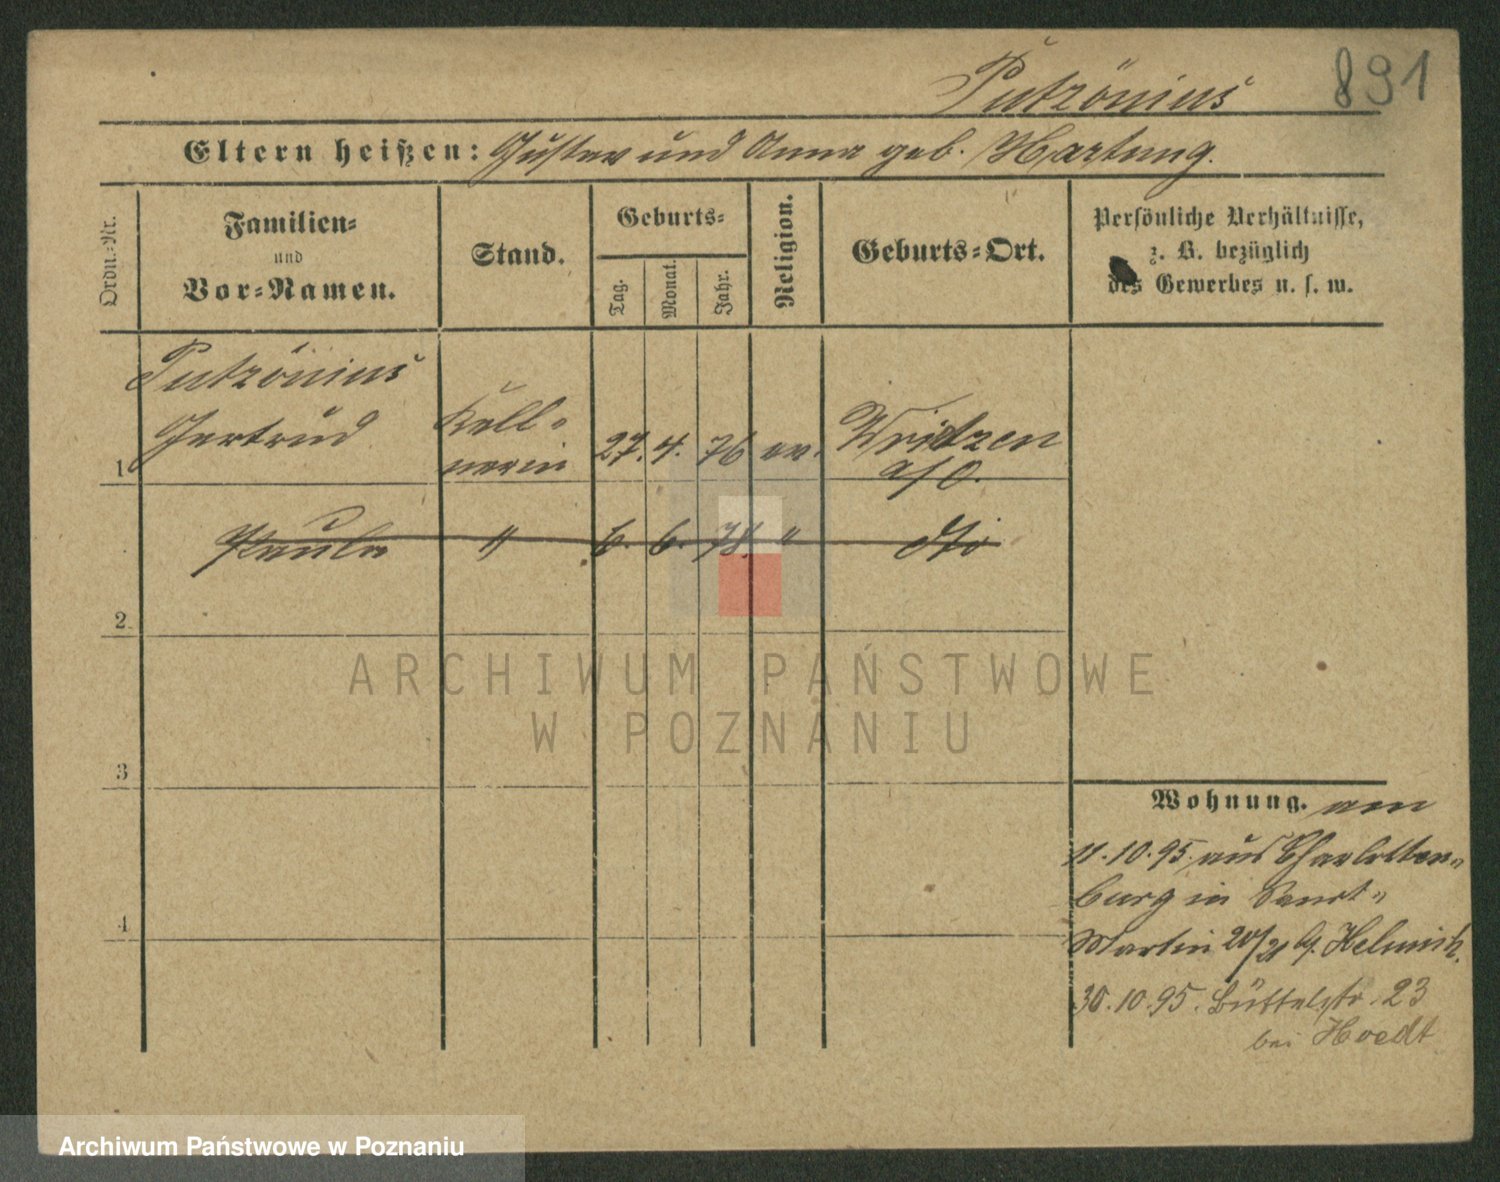 Putzönius 891
Eltern heißen: Gustav und Anna geb. Hartung.
Ordn.-Nr.
Familien-
und
Vor-Namen.
Stand.
Geburts-
Tag.
Monat.
Jahr.
Religion.
Geburts-Ort.
Persönliche Verhältnisse,
z. B. bezüglich
des Gewerbes u. s. w.
Putzönius
Gertrud
Kell-
nerin
1 27. 4. 76 ev. Writzen
a/O.
Paula " 6. 6. 78. " dto
2
3
4
Wohnung. am
11.10.95. aus Charlotten-
burg in Sanct-
Martin 20/21 b/. Helmich.
30.10.95. Büttelstr. 23
bei Hoedt
ARCHIWUM PAŃSTWOWE
W POZNANIU
Archiwum Państwowe w Poznaniu